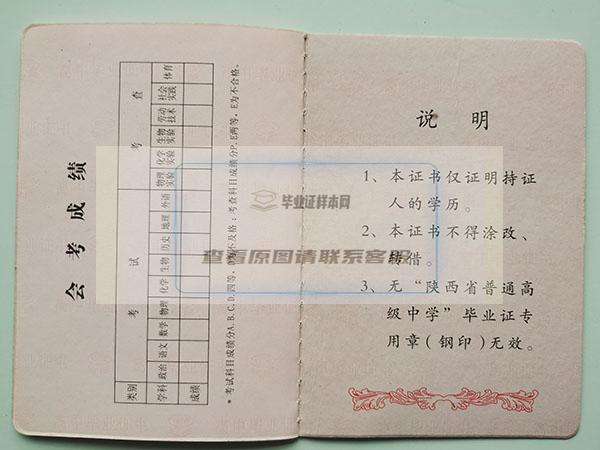 会考成绩
类别 考试 考查
学科 政治 语文 数学 物理 化学 生物 历史 地理 外语 物理实验 化学实验 生物实验 劳动技术 社会实践 体育
成绩
*考试科目成绩分A、B、C、D、四等，D为不及格；考查科目成绩分P、E两等，E为不合格。
说明
1、本证书仅证明持证
人的学历。
2、本证书不得涂改、
转借。
3、无“陕西省普通高
级中学”毕业证专
用章（钢印）无效。
毕业证样本网
查看原图请联系客服